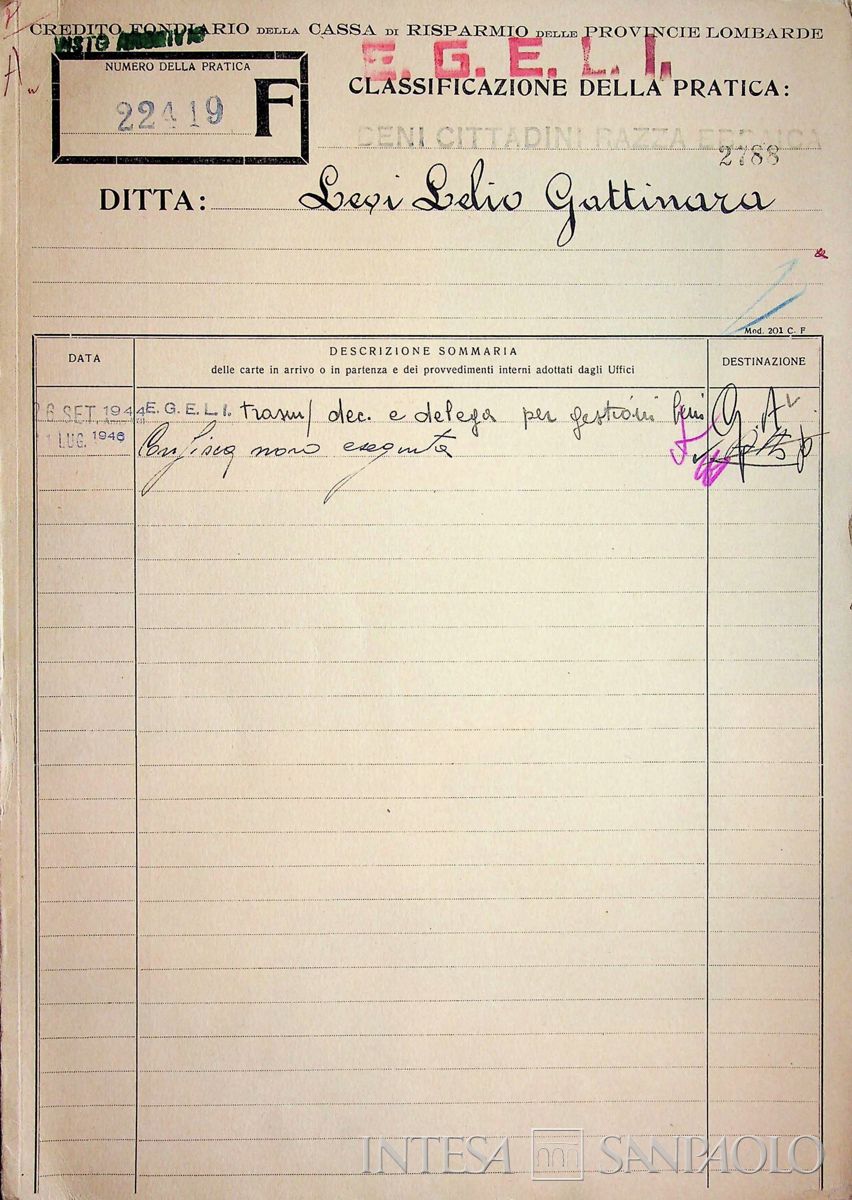 CREDITO FONDIARIO DELLA CASSA DI RISPARMIO DELLE PROVINCIE LOMBARDE
VISTO ARCHIVIO
E. G. E. L. I.
NUMERO DELLA PRATICA
22419 F
CLASSIFICAZIONE DELLA PRATICA:
BENI CITTADINI RAZZA EBRAICA
2788
DITTA: Levi Lelio Gattinara
Mod. 201 C. F
DATA
DESCRIZIONE SOMMARIA
delle carte in arrivo o in partenza e dei provvedimenti interni adottati dagli Uffici
DESTINAZIONE
26 SET. 1944 E. G. E. L. I. trasm/ dec. e delega per gestioni beni G. A
1 LUG. 1946 Confisca non eseguita
INTESA SANPAOLO